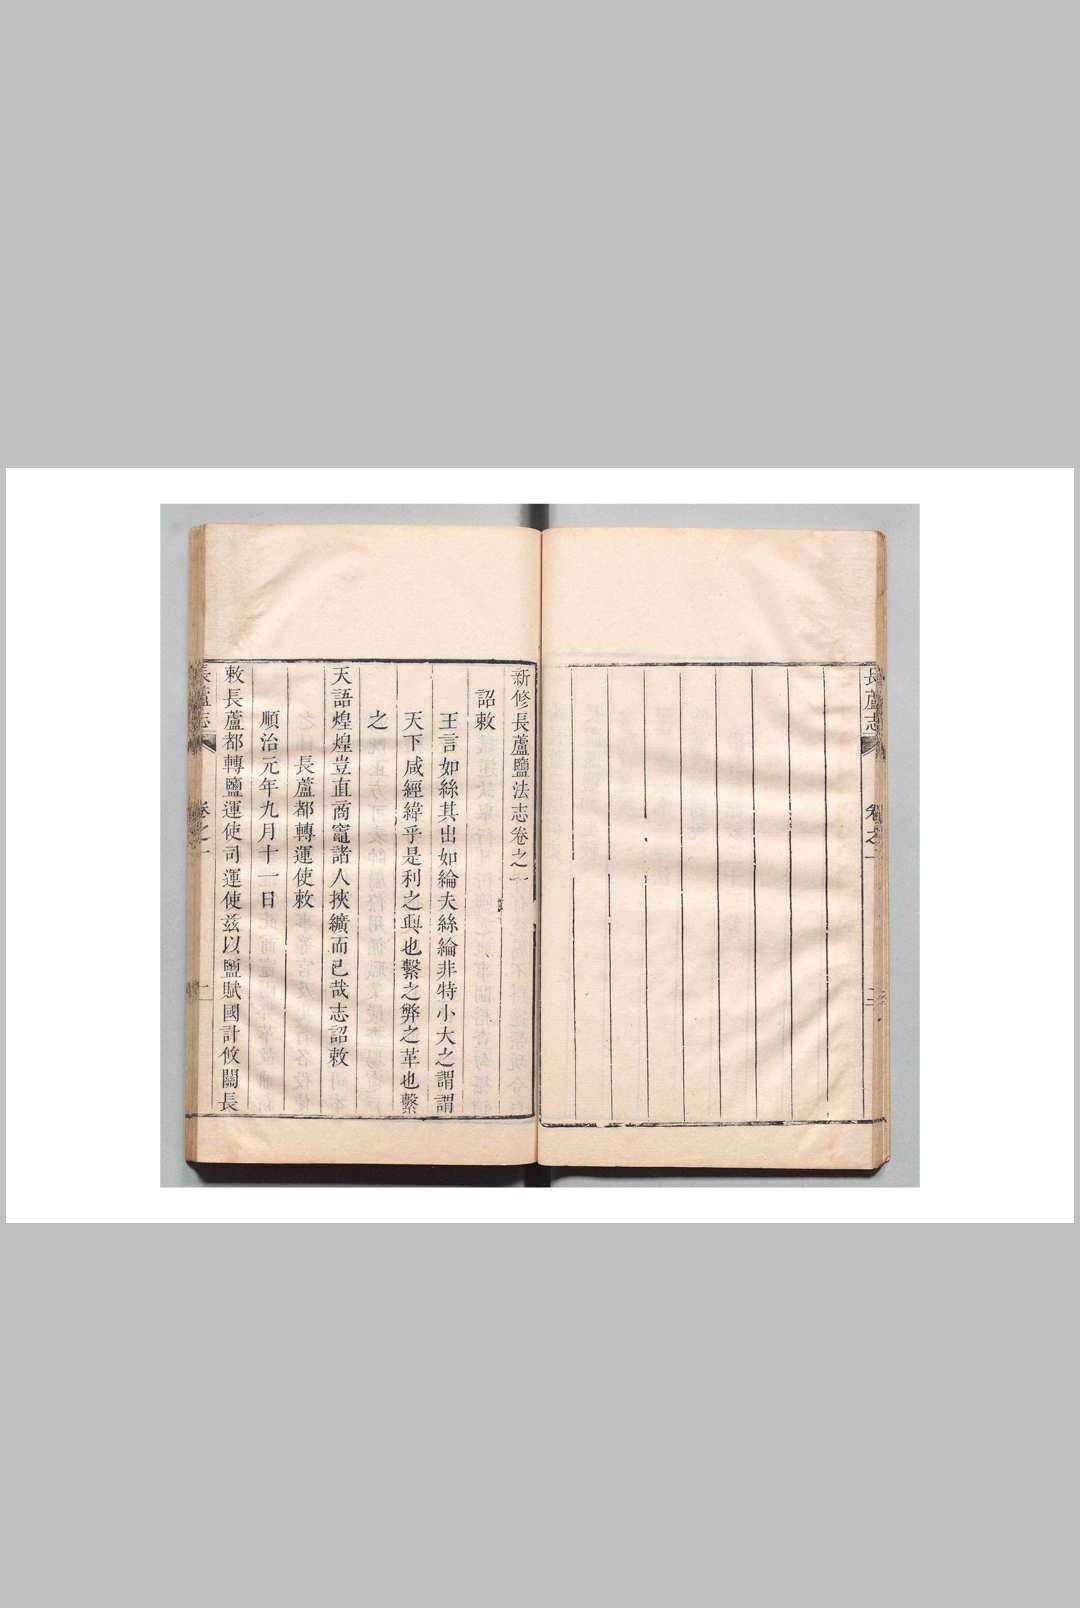 長蘆志
卷之一
新修長蘆鹽法志卷之一
詔敕
王言如絲其出如綸夫絲綸非特小大之謂謂
天下咸經緯乎是利之興也繫之弊之革也繫
之
天語煌煌豈直商竈諸人挾纊而已哉志詔敕
長蘆都轉運使敕
順治元年九月十一日
敕長蘆都轉鹽運使司運使茲以鹽賦國計攸關長
長蘆志
卷之一
一